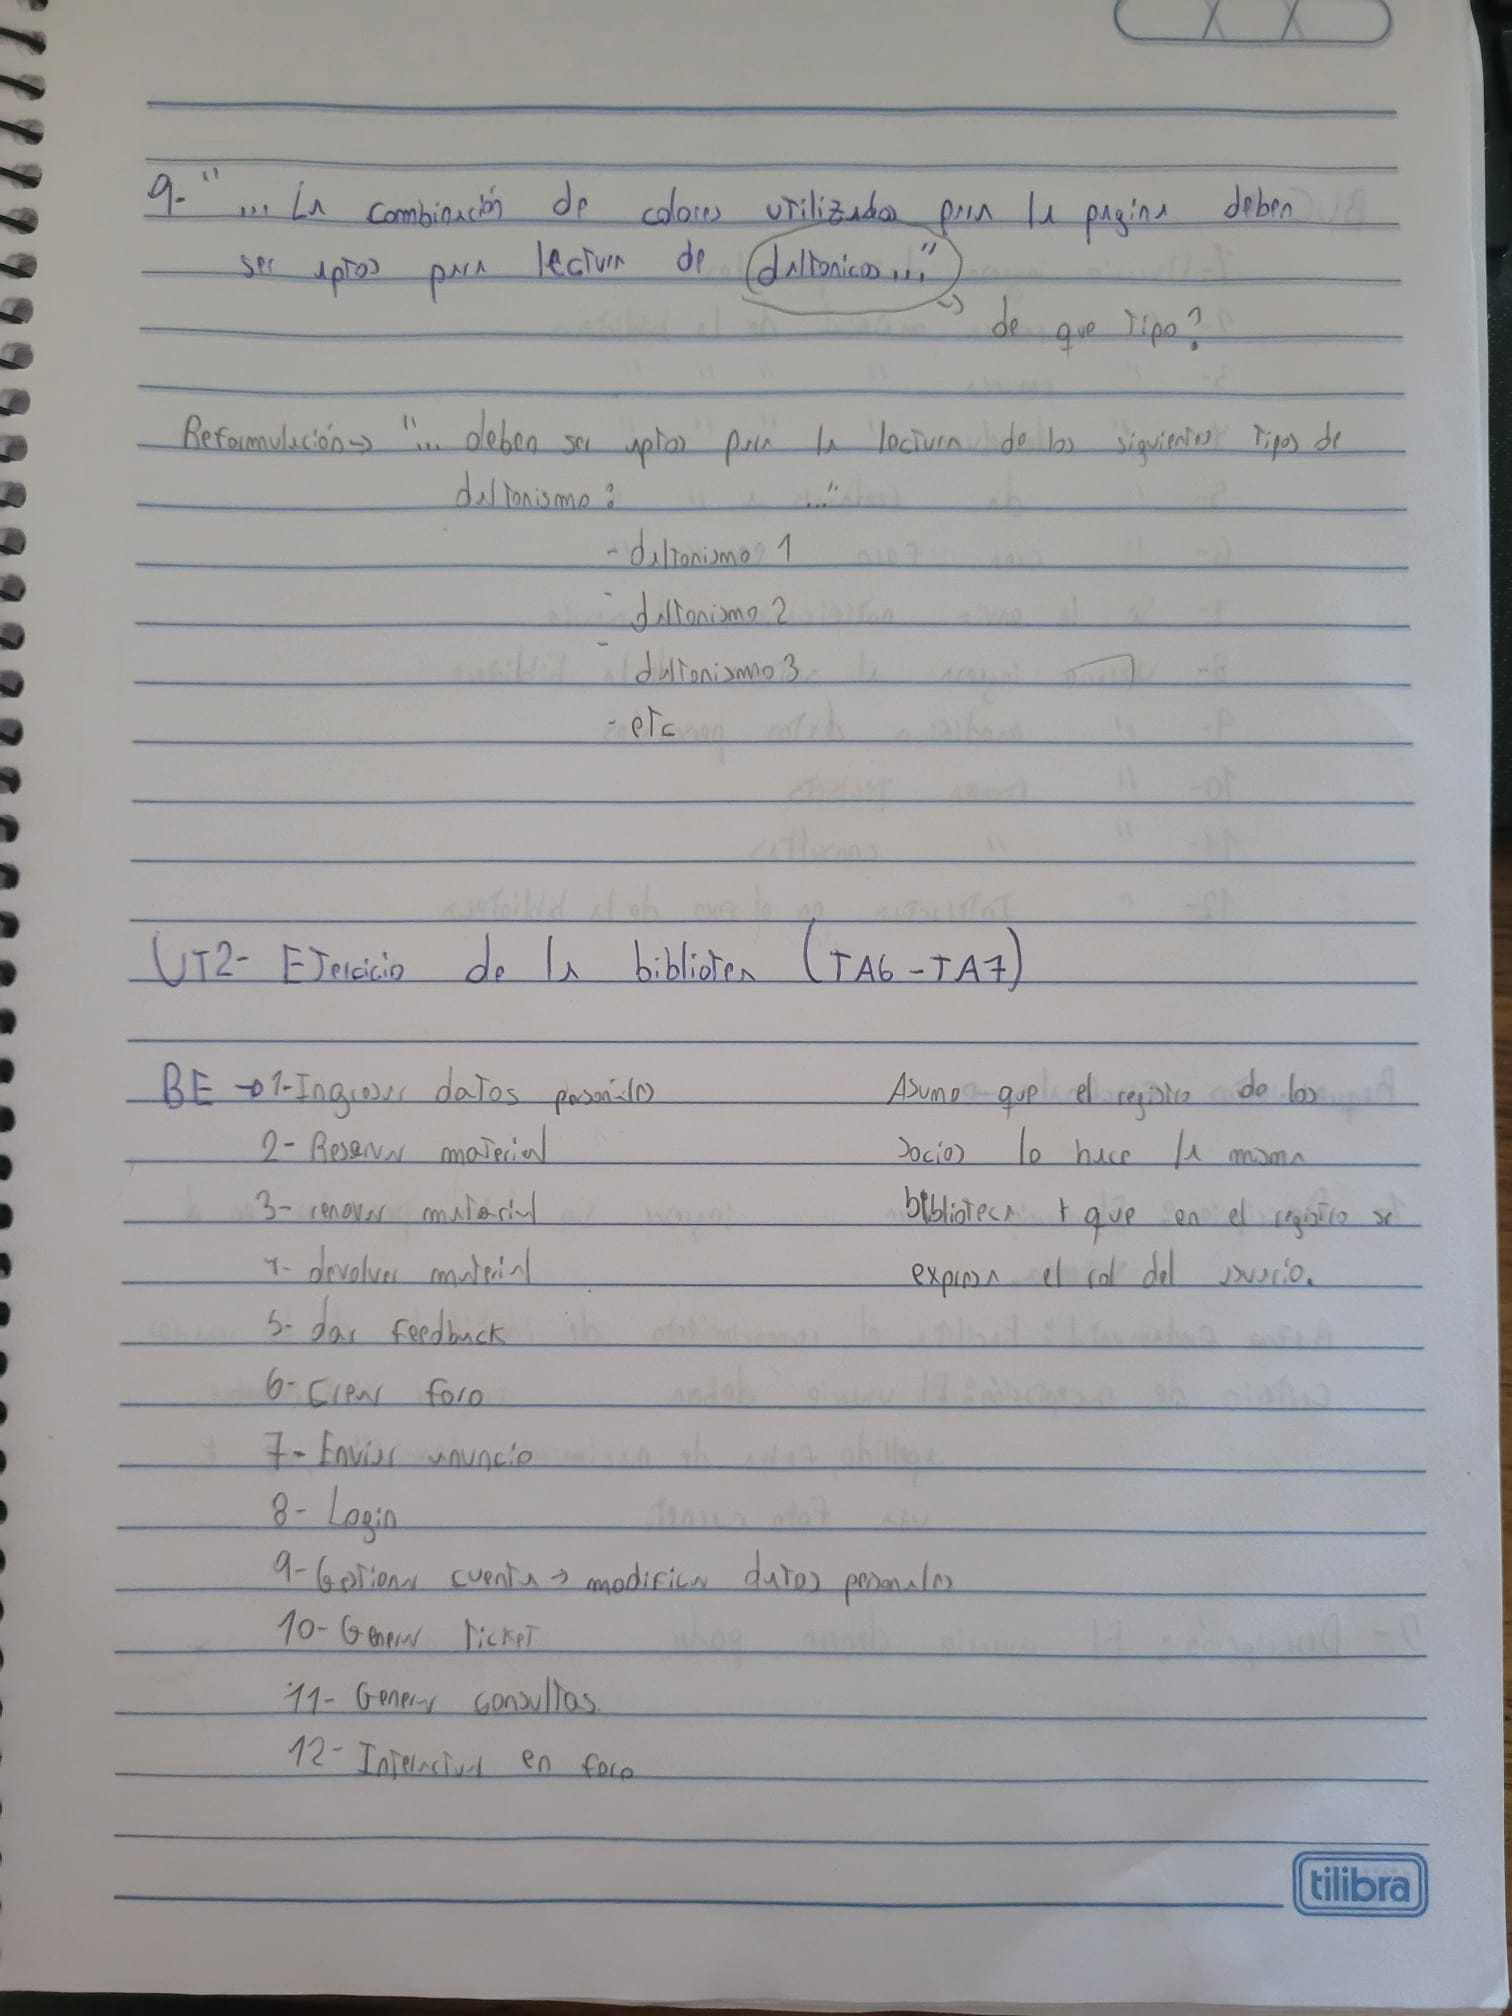 9- "... La combinación de colores utilizados para la pagina deben
ser aptos para lectura de daltonicos..."
de que tipo?
Reformulación→ "... deben ser aptos para la lectura de los siguientes tipos de
daltonismo: ..."
- daltonismo 1
- daltonismo 2
- daltonismo 3
- etc
UT2- Ejercicio de la biblioteca (TA6-TA7)
BE → 1-Ingresar datos personales
2- Reservar material
3- renovar material
4- devolver material
5- dar feedback
6- Crear foro
7- Enviar anuncio
8- Login
9- Gestionar cuenta → modificar datos personales
10- Generar ticket
11- Generar consultas
12- Interactuar en foro
Asumo que el registro de los
socios lo hace la misma
biblioteca y que en el registro se
expresa el rol del usuario.
tilibra